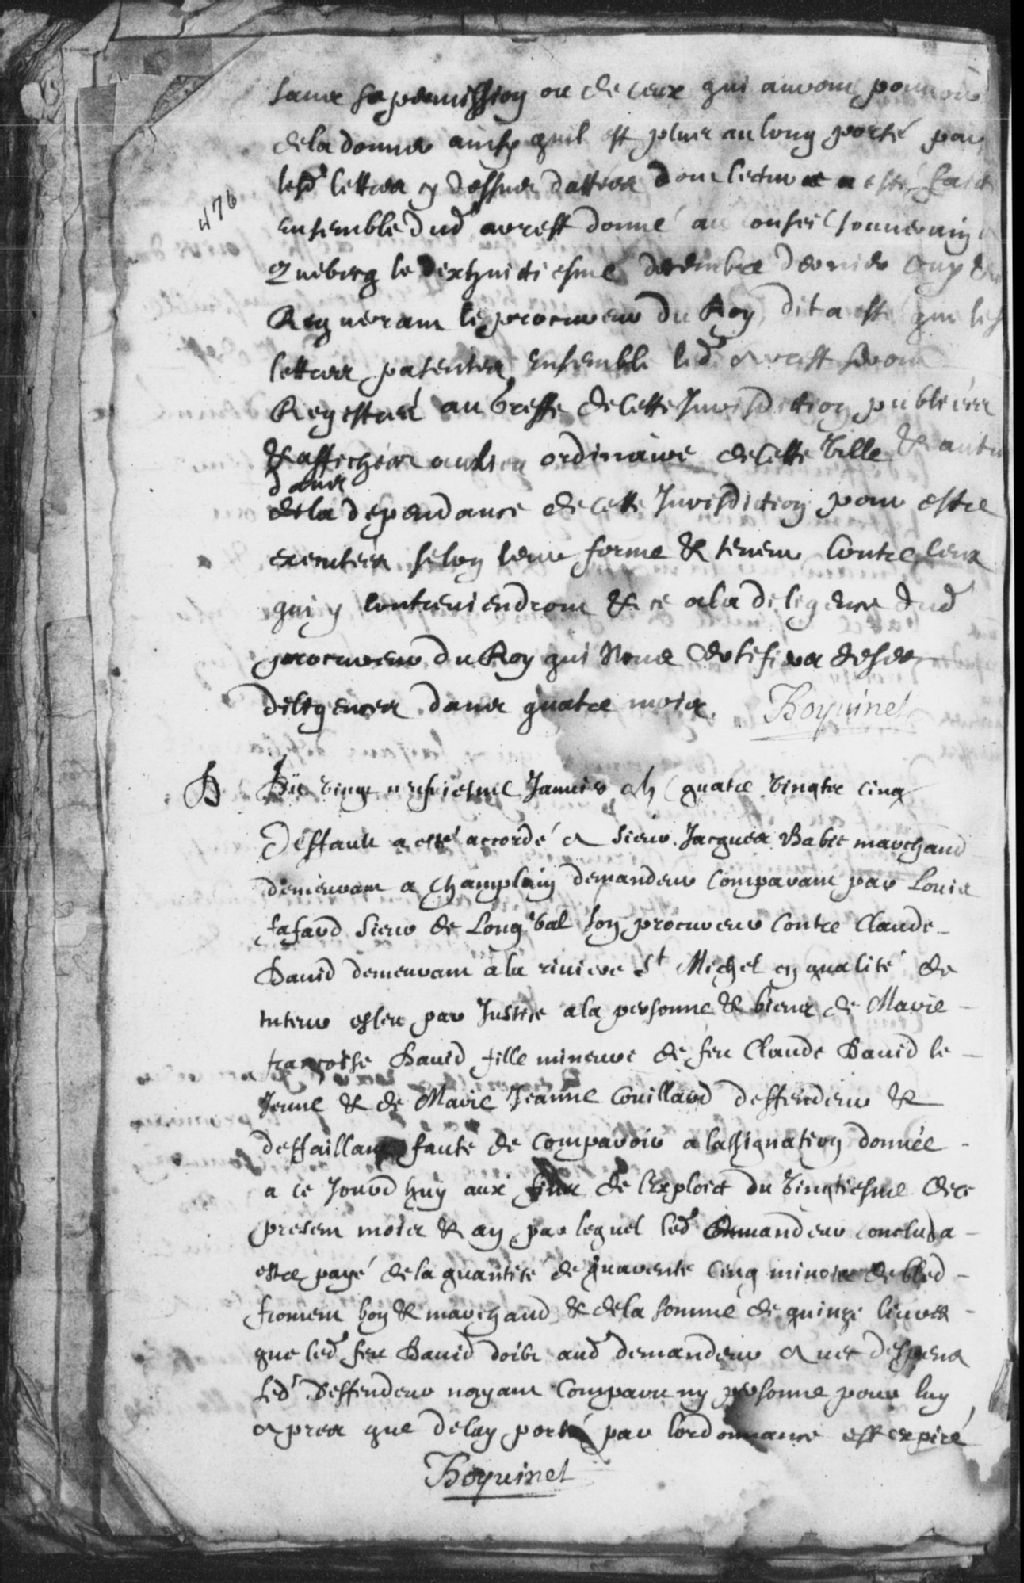 sans sa permission ou de ceux qui auront pouvoir
de la donner ainsy quil est plus au long porté par
lesd lettres cy dessus dattées dont lecture a esté faite
476
Ensemble dud arrest donné au Conseil souverain
Quebecq le dixhuictiesme decembre dernier ouy &
Requerant le procureur du Roy, dit a esté que les
lettres patentes Ensemble led arrest seront
Registrées au Greffe de cette Jurisdiction publiées
& affichées au lieu ordinaire de cette Ville &
dans
de la dependance de cette Jurisdiction pour estre
executées selon leur forme & teneur Contre Ceux
qui y contreviendront & ce a la diligence dud
procureur du Roy qui Nous certifiera de ses
diligences dans quatre mois. Boyvinet
D Du vingt neufiesme Janvier gbj C quatre vingts cinq
Deffault a esté accordé a sieur Jacques Babie marchand
demeurant a Champlain demandeur Comparant par Louis
fafard Sieur de Long Val son procureur Contre Claude
David demeurant a la riviere St Michel en qualité de
tuteur esleu par Justice a la personne & biens de Marie
françoise David fille mineure de feu Claude David le
Jeune & de Marie Jeanne Couillard deffendeur &
deffaillant faute de comparoir a lassignation donnée
a ce Jourd huy aux fins de lexploict du vingtiesme de ce
present mois & an par lequel led demandeur conclud a
estre payé de la quantité de quarente cinq minotz de bled
froment bon & marchand & de la somme de quinze livres
que led feu David doibt aud demandeur avec despens
Led Deffendeur nayant Comparu ny personne pour luy
apres que delay porté par lordonnance est expiré
Boyvinet